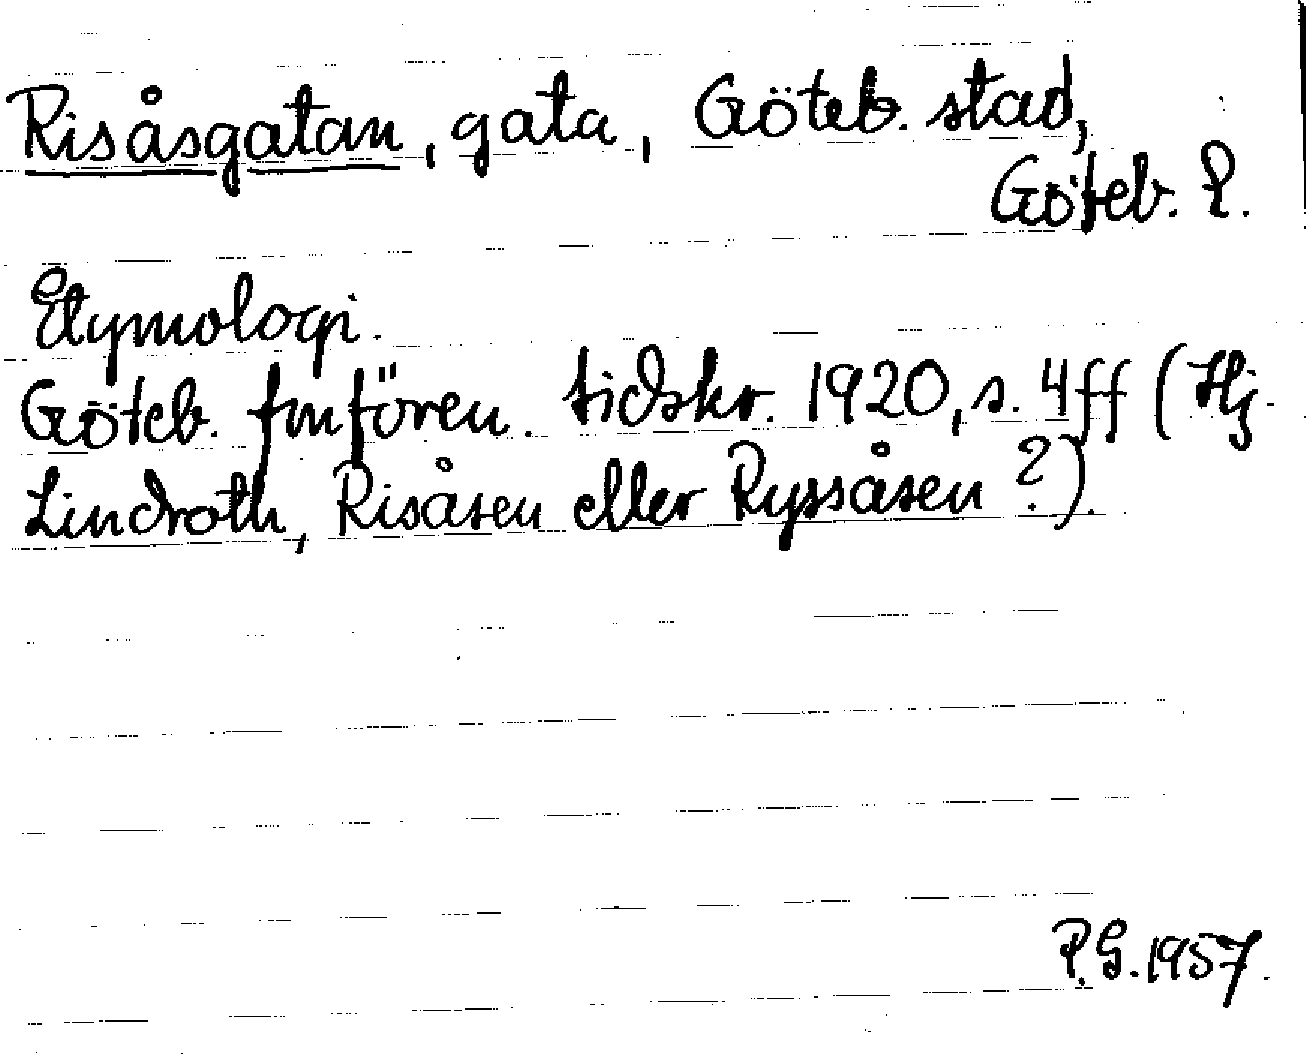 Risåsgatan, gata, Göteb. stad,
Göteb. l.
Etymologi.
Göteb. fnfören. tidskr. 1920, s. 4ff (Hj.
Lindroth, Risåsen eller Ryssåsen?).
P.G. 1957.